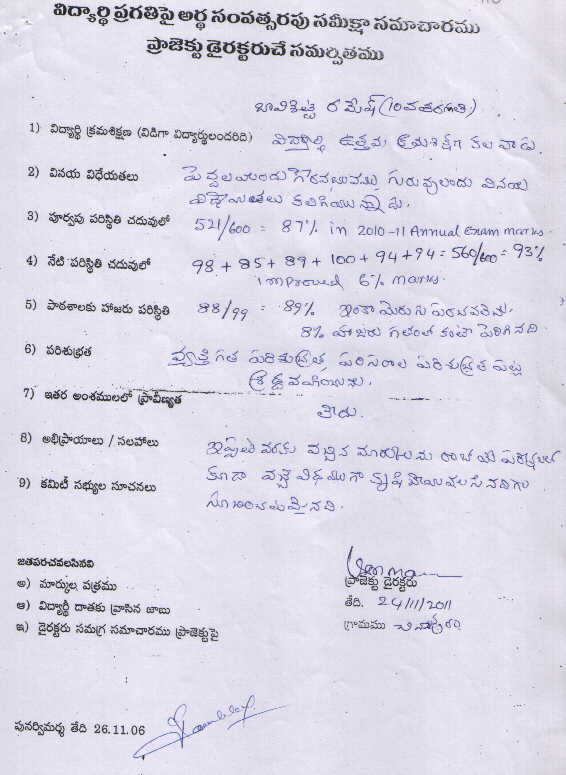 విద్యార్థి ప్రగతిపై అర్థ సంవత్సరపు సమీక్షా సమాచారము
ప్రాజెక్టు డైరక్టరుచే సమర్పితము
రమేష్ (10వతరగతి)
1) విద్యార్థి క్రమశిక్షణ (విడిగా విద్యార్థులందరిది) విద్యార్థి ఉత్తమ క్రమశిక్షణ కలవాడు.
2) వినయ విధేయతలు పెద్దలయందు గౌరవభావము, గురువులయందు వినయ
విధేయతలు కలిగియున్నాడు.
3) పూర్వపు పరిస్థితి చదువులో 521/600 = 87% in 2010-11 Annual Exam marks.
4) నేటి పరిస్థితి చదువులో 98 + 85 + 89 + 100 + 94 + 94 = 560/600 = 93%
improved 6% marks.
5) పాఠశాలకు హాజరు పరిస్థితి 88/99 = 89% ఇంకా మెరుగు పరచవలెను.
8% హాజరు గతంలో కంటే పెరిగినది.
6) పరిశుభ్రత వ్యక్తిగత పరిశుభ్రత, పరిసరాల పరిశుభ్రత పట్ల
శ్రద్ధ వహించును.
7) ఇతర అంశములలో ప్రావీణ్యత లేదు.
8) అభిప్రాయాలు / సలహాలు ఇప్పటి వరకు వచ్చిన మార్కులను రాబోయే పరీక్షలలో
9) కమిటీ సభ్యుల సూచనలు కూడా వచ్చే విధముగా కృషి చేయవలసినదిగా
సూచించడమైనది.
జతపరచవలసినవి
అ) మార్కుల పత్రము
ఆ) విద్యార్థి దాతకు వ్రాసిన జాబు
ఇ) డైరక్టరు సమగ్ర సమాచారము ప్రాజెక్టుపై
ప్రాజెక్టు డైరక్టరు
తేది. 24/11/2011
గ్రామము
పునర్విమర్శ తేది 26.11.06